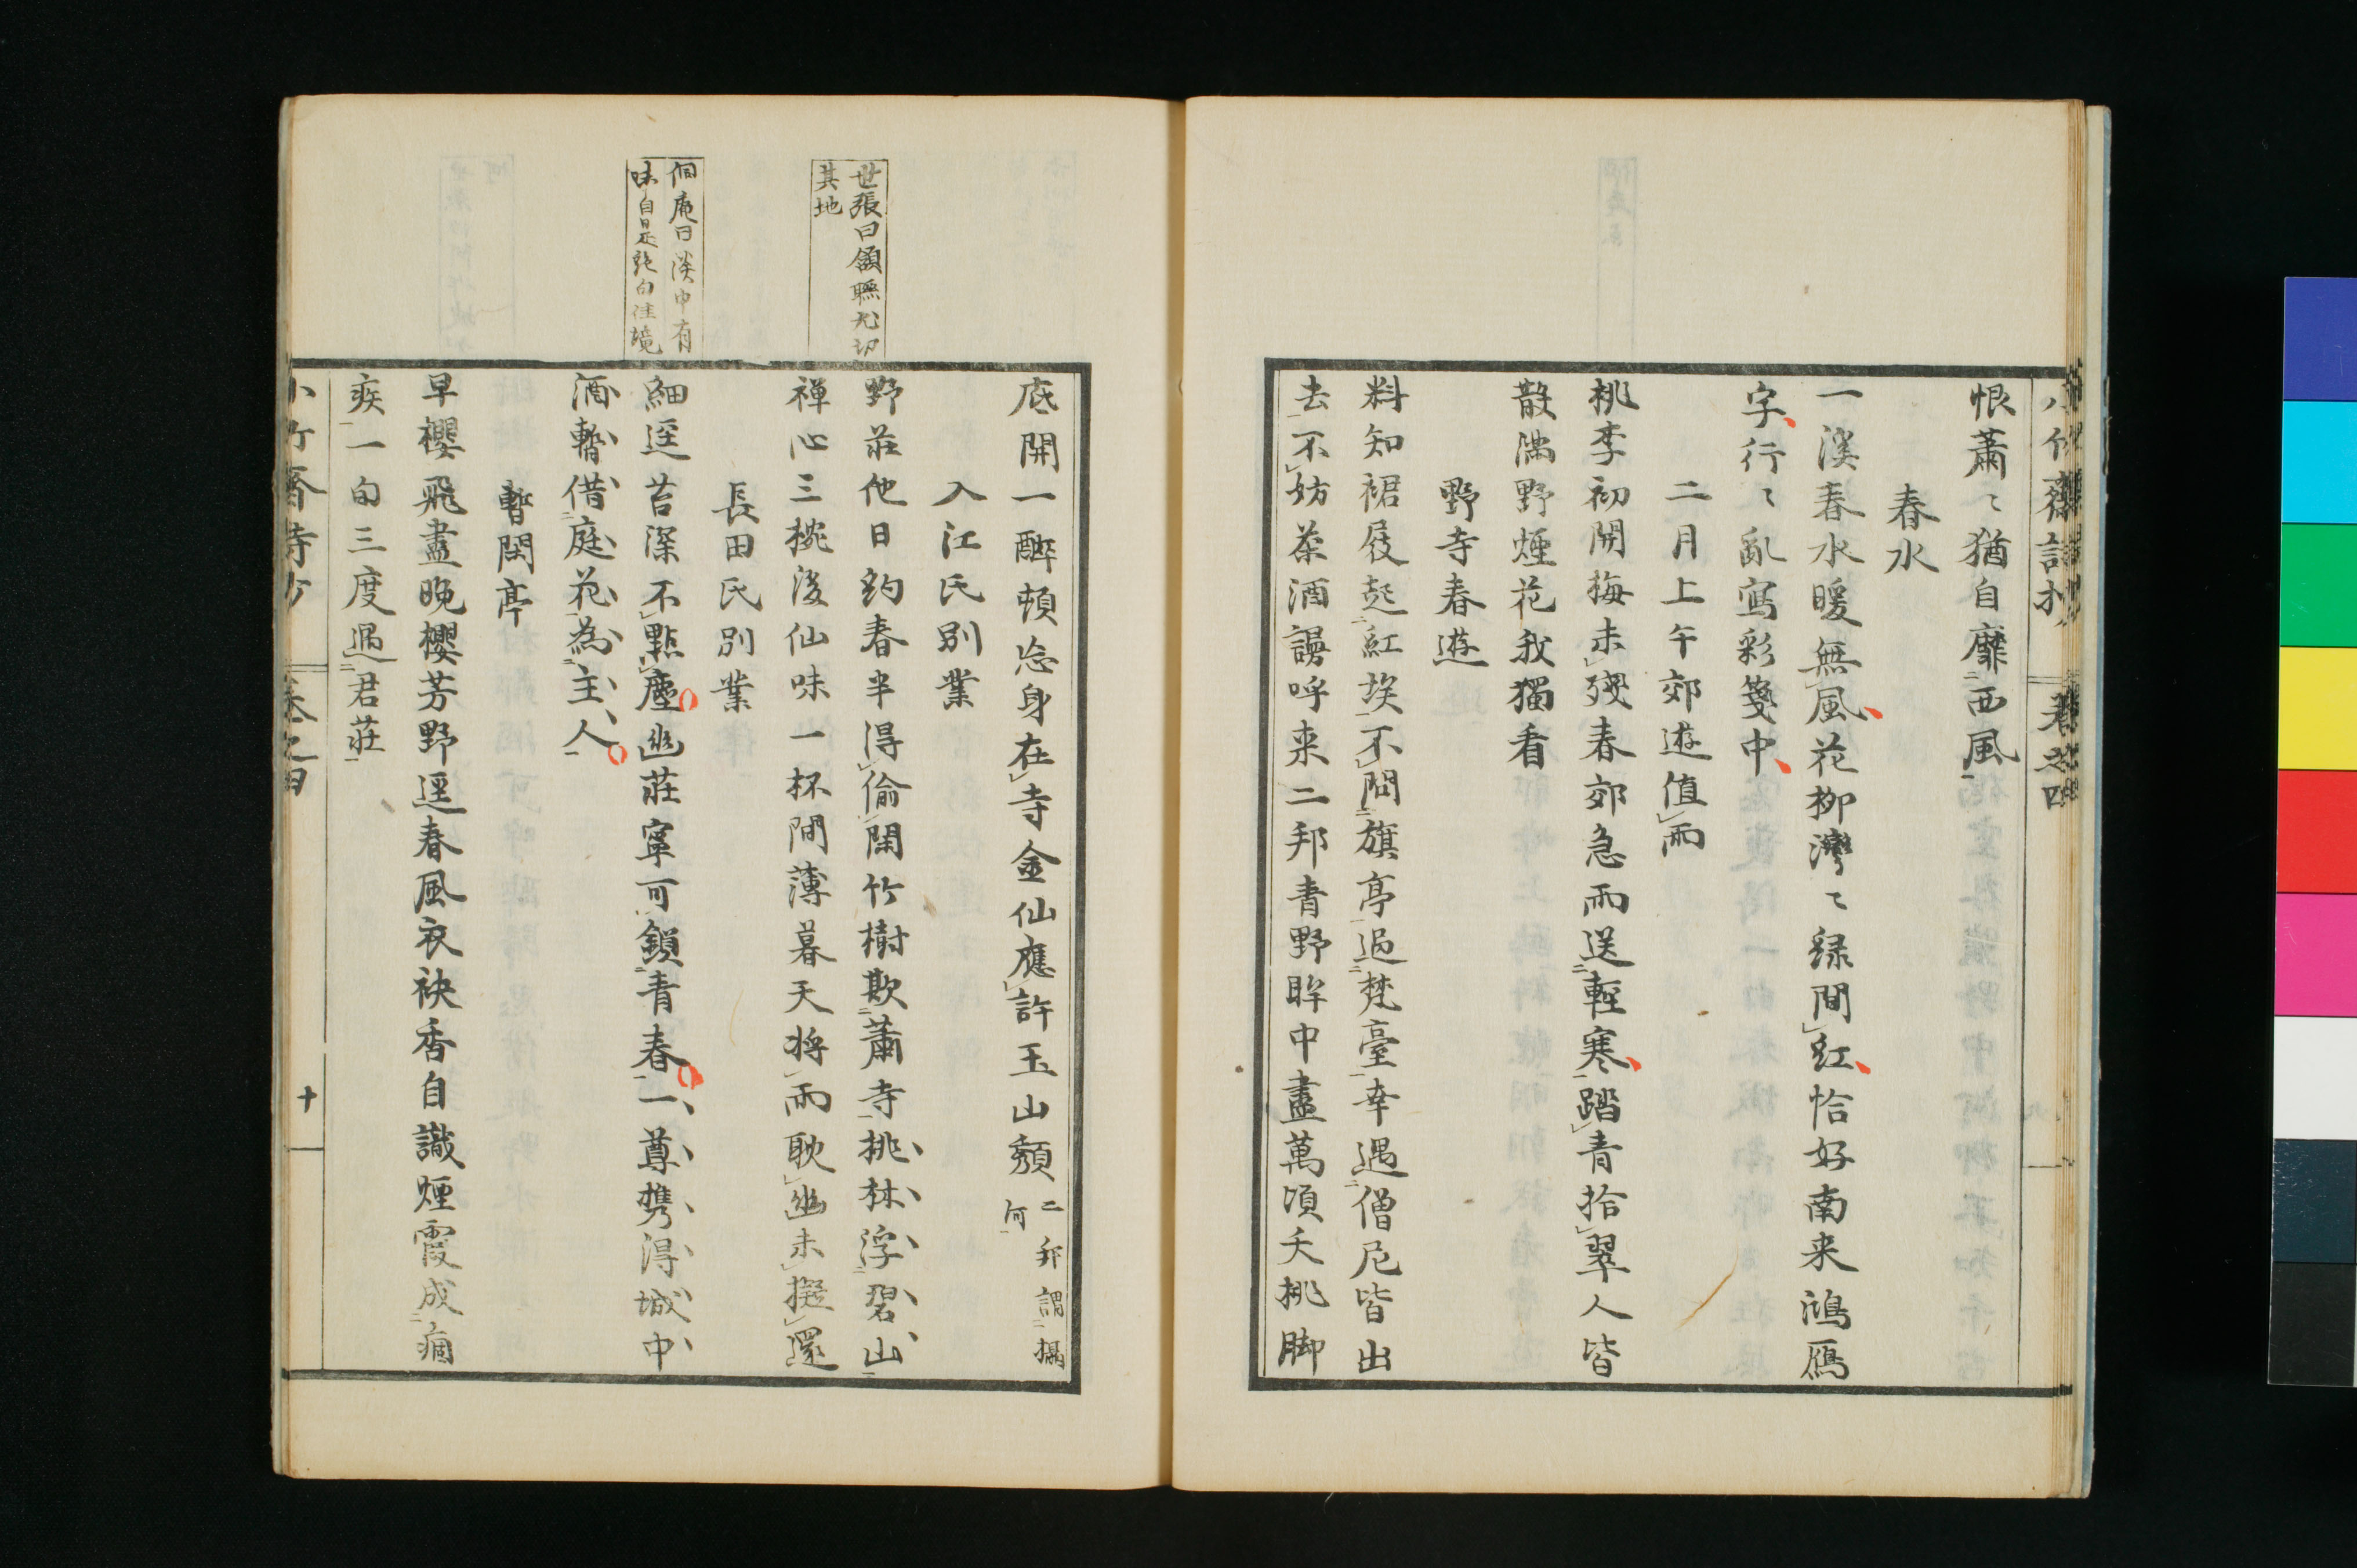 小竹齋詩抄 卷之四
恨蕭〻猶自靡西風
春水
一溪春水暖無風花柳灣〻綠間紅恰好南來鴻雁
字行〻亂寫彩箋中
二月上午郊遊值雨
桃李初開梅未殘春郊急雨送輕寒踏青拾翠人皆
散滿野煙花我獨看
野寺春遊
料知裙屐起紅埃不問旗亭過梵臺幸遇僧尼皆出
去不妨茶酒謾呼来二邦青野眸中盡萬頃夭桃脚
底開一醉頓忘身在寺金仙應許玉山頹 二邦謂攝
何
入江氏別業
世張曰頷聯尤切
其地
野莊他日約春半得偷閑竹樹欺蕭寺桃林浮碧山
禅心三椀後仙味一杯間薄暮天将雨耽幽未擬還
長田氏別業
侗庵曰淡中有
味自是絶句佳境
細逕苔深不點塵幽莊寧可鎖青春一尊携得城中
酒暫借庭花為主人
暫閑亭
早櫻飛盡晚櫻芳野逕春風衣袂香自識煙霞成痼
疾一旬三度過君莊
小竹齋詩抄 卷之四 十